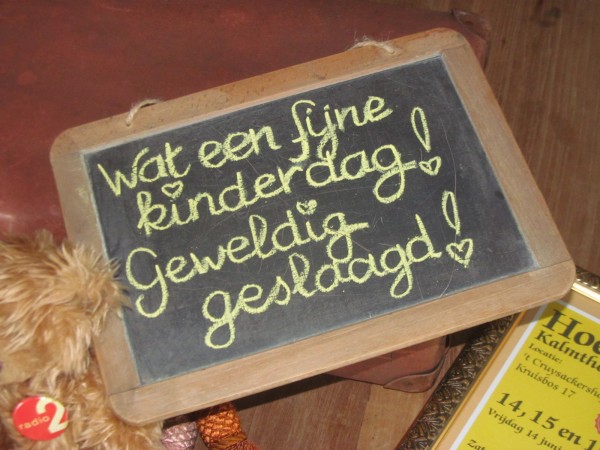 Wat een fijne
kinderdag!
Geweldig
geslaagd!
radio 2
Kalmthou
Locatie:
't Cruysackershoe
Kruisbos 17
14, 15 en 1
Vrijdag 14 juni